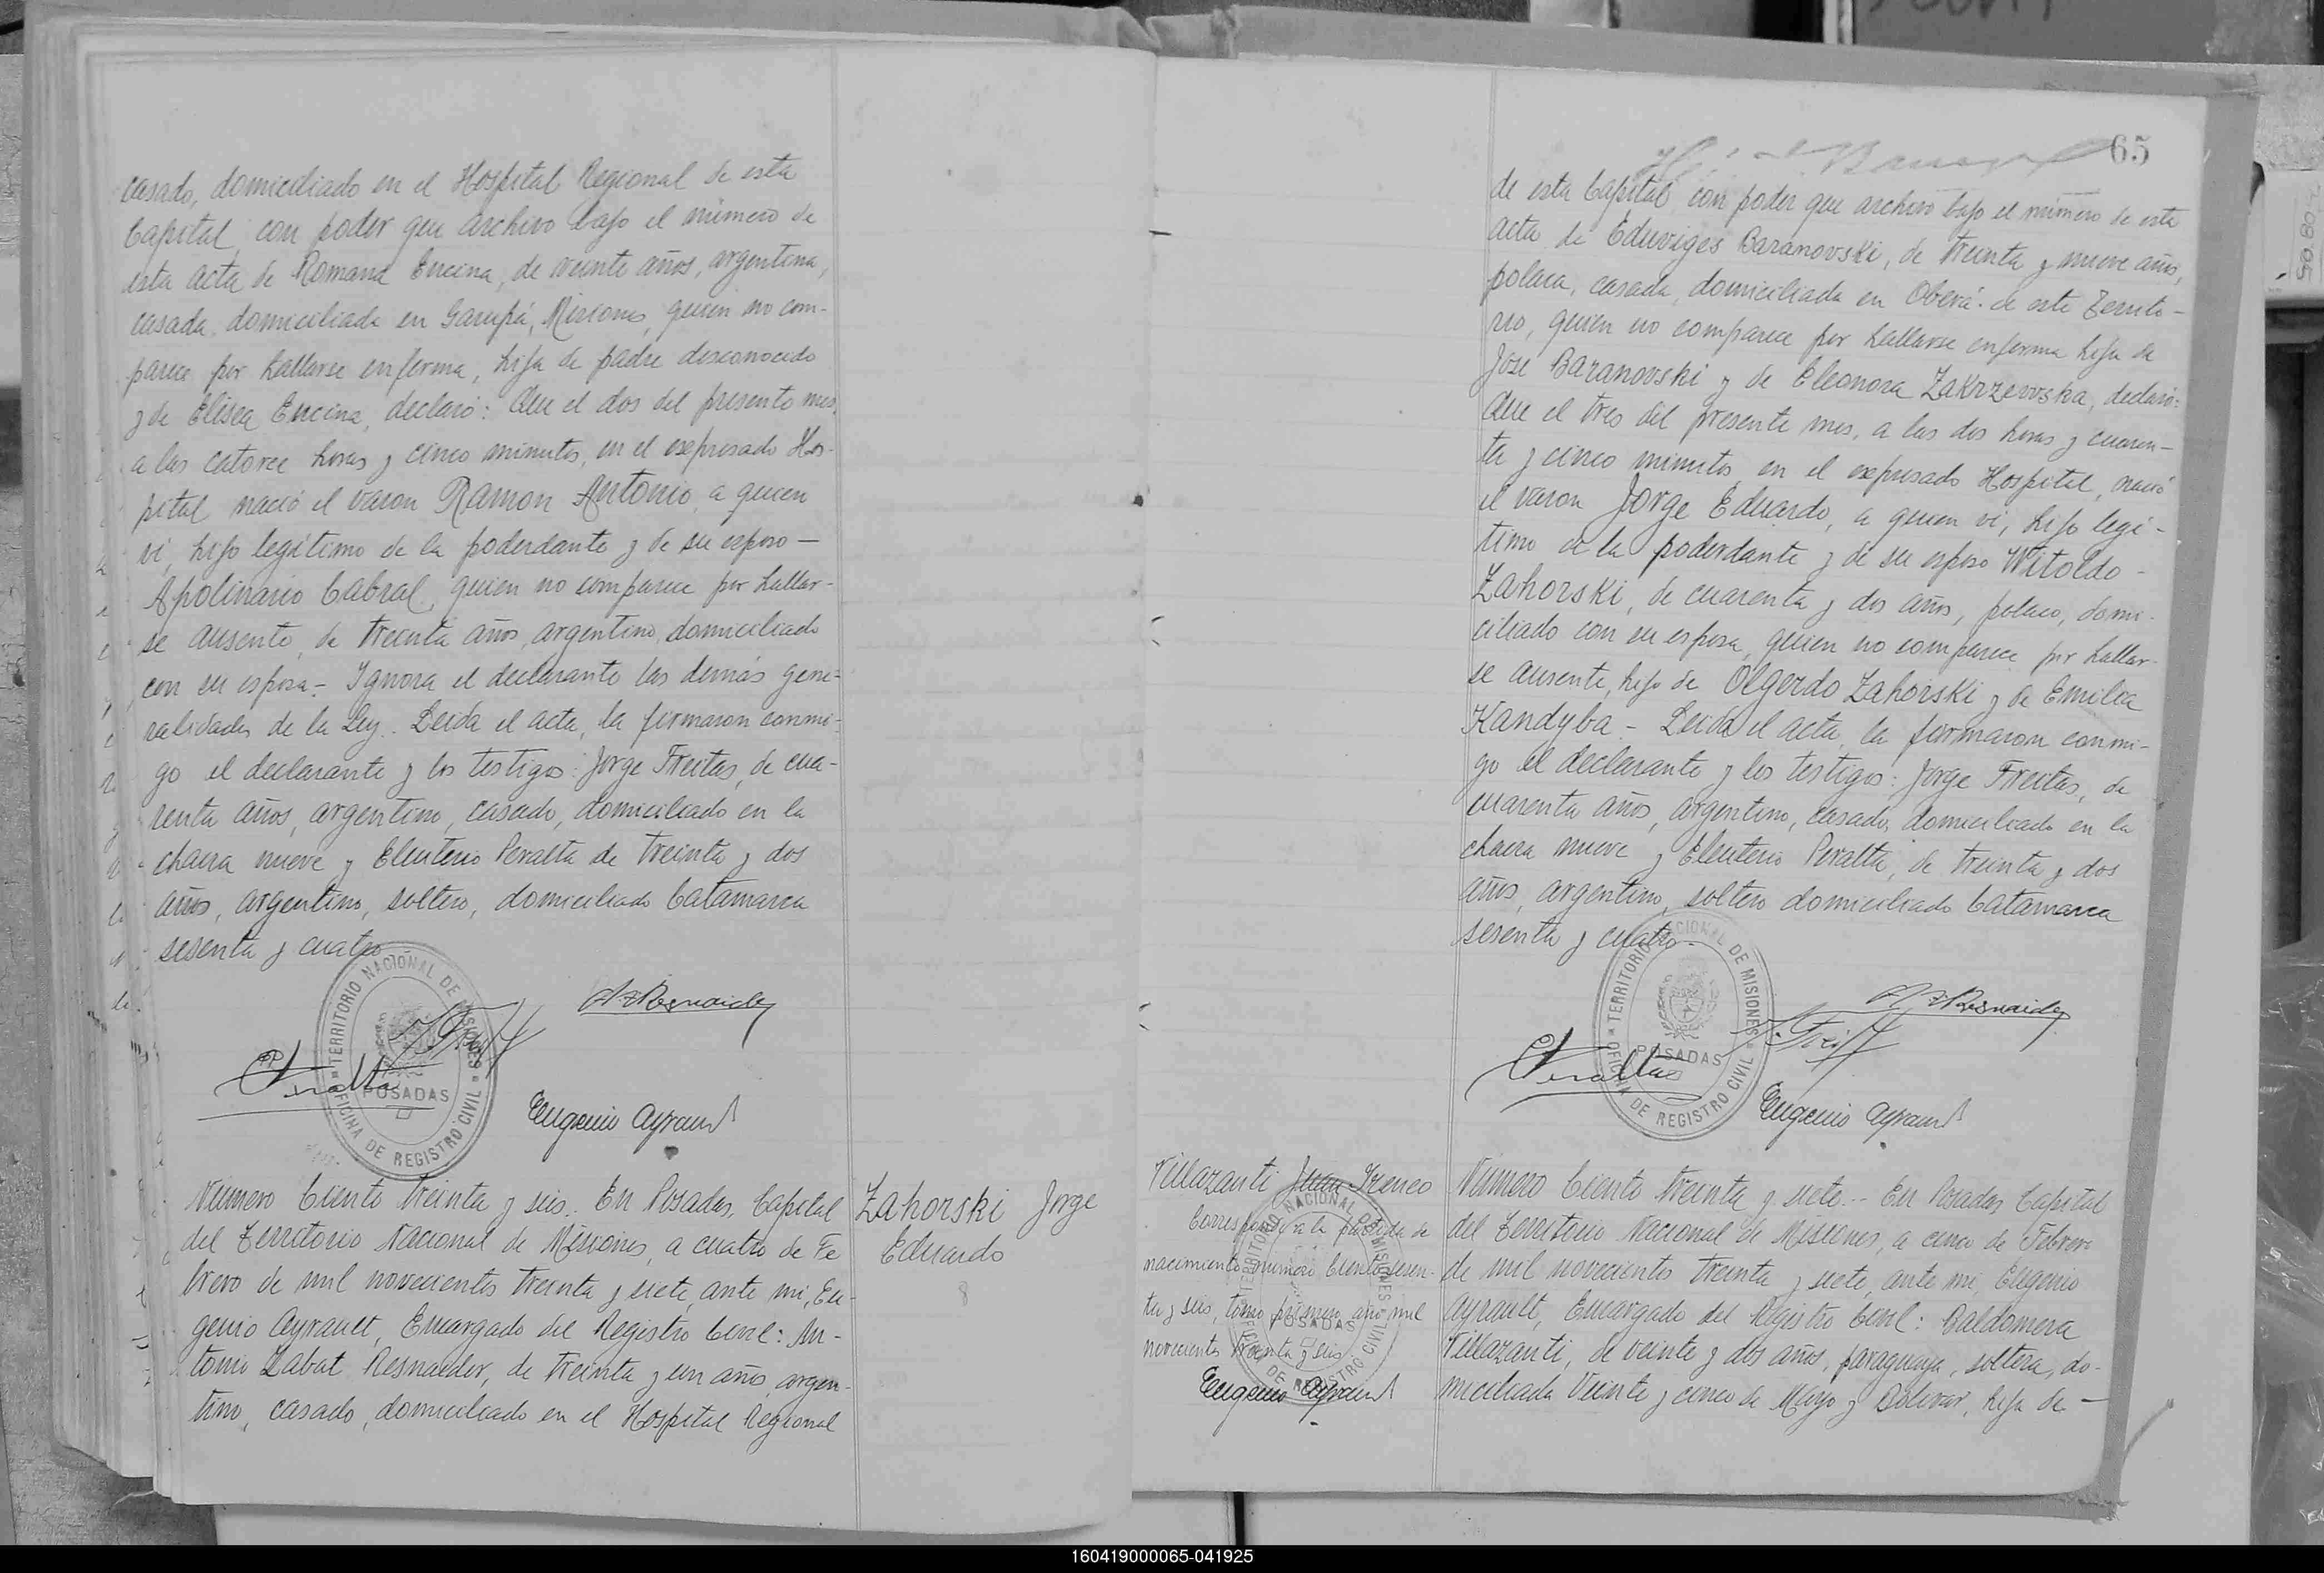 casado, domiciliado en el Hospital Regional de esta
Capital, con poder que archivo bajo el número de
esta acta de Romana Encina, de veinte años, argentina,
casada, domiciliada en Garupá, Misiones, quien no com-
parece por hallarse enferma, hija de padre desconocido
y de Elisea Encina, declaró: Que el dos del presente mes,
a las catorce horas y cinco minutos, en el expresado Hos-
pital nació el varon Ramon Antonio, a quien
vi, hijo legítimo de la poderdante y de su esposo —
Apolinario Cabral, quien no comparece por hallar-
se ausente, de treinta años, argentino, domiciliado
con su esposa.- Ignora el declarante las demás gene-
ralidades de la Ley.. Leida el acta, la firmaron conmi-
go el declarante y los testigos: Jorge Freitas, de cua-
renta años, argentino, casado, domiciliado en la
chacra nueve y Eleuterio Peralta de treinta y dos
años, argentino, soltero, domiciliado Catamarca
sesenta y cuatro
TERRITORIO NACIONAL DE MISIONES
POSADAS
OFICINA DE REGISTRO CIVIL
Peralta
Eugenio Ayrault
Número Ciento treinta y seis.. En Posadas, Capital
del Territorio Nacional de Misiones, a cuatro de Fe
brero de mil novecientos treinta y siete, ante mi, Eu-
genio Ayrault, Encargado del Registro Civil: An-
tonio Zabat Resnaeder, de treinta y un años, argen-
tino, casado, domiciliado en el Hospital Regional
Zahorski Jorge
Eduardo
8
65
de esta Capital, con poder que archivo bajo el número de esta
acta de Eduviges Baranovski, de treinta y nueve años,
polaca, casada, domiciliada en Oberá de este Territo-
rio, quien no comparece por hallarse enferma hija de
José Baranovski y de Eleonora Zakrzevvska, declaró:
Que el tres del presente mes, a las dos horas y cuaren-
ta y cinco minutos, en el expresado Hospital, nació
el varon Jorge Eduardo, a quien vi, hijo legí-
timo de la poderdante y de su esposo Witoldo -
Zahorski, de cuarenta y dos años, polaco, domi-
ciliado con su esposa, quien no comparece por hallar-
se ausente, hijo de Olgerdo Zahorski y de Emilia
Kandyba - Leida el acta, la firmaron conmi-
go el declarante y los testigos: Jorge Freitas, de
cuarenta años, argentino, casado, domiciliado en la
chacra nueve y Eleuterio Peralta, de treinta y dos
años, argentino, soltero domiciliado Catamarca
sesenta y cuatro.-
TERRITORIO NACIONAL DE MISIONES
POSADAS
OFICINA DE REGISTRO CIVIL
Peralta
Eugenio Ayrault
Villazanti Juan Ireneo
Corresponde a la partida de
nacimiento número Ciento sesen-
ta y seis, tomo primero, año mil
novecientos treinta y seis.
Eugenio Ayrault
Número Ciento treinta y siete.- En Posadas Capital
del Territorio Nacional de Misiones, a cinco de Febrero
de mil novecientos treinta y siete, ante mi, Eugenio
Ayrault, Encargado del Registro Civil: Baldomera
Villazanti, de veinte y dos años, paraguaya, soltera, do-
miciliada Veinte y cinco de Mayo y Bolivar, hija de —
160419000065-041925